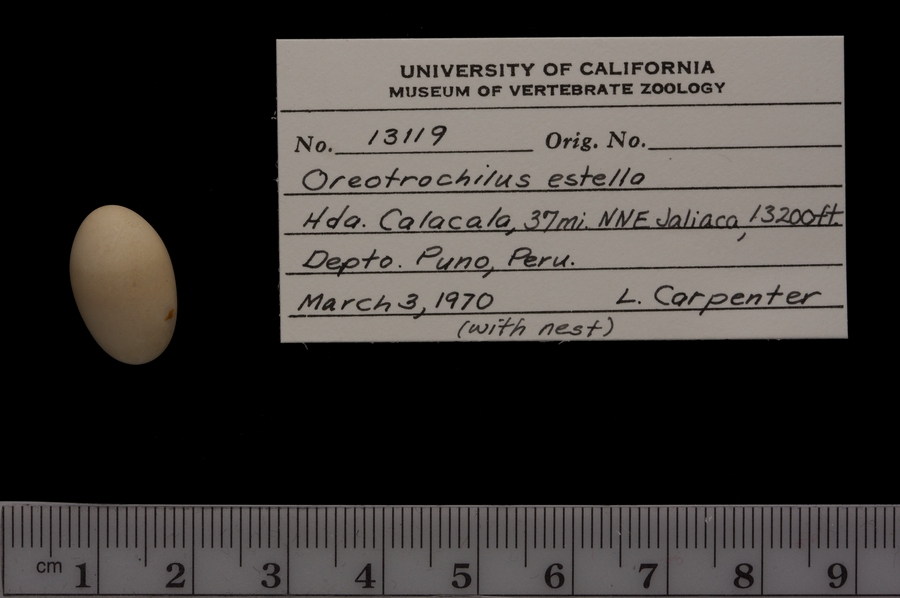 UNIVERSITY OF CALIFORNIA
MUSEUM OF VERTEBRATE ZOOLOGY
No. 13119 Orig. No.
Oreotrochilus estella
Hda. Calacala, 37mi. NNE Jaliaca, 13200ft.
Depto. Puno, Peru.
March 3, 1970 L. Carpenter
(with nest)
cm 1 2 3 4 5 6 7 8 9